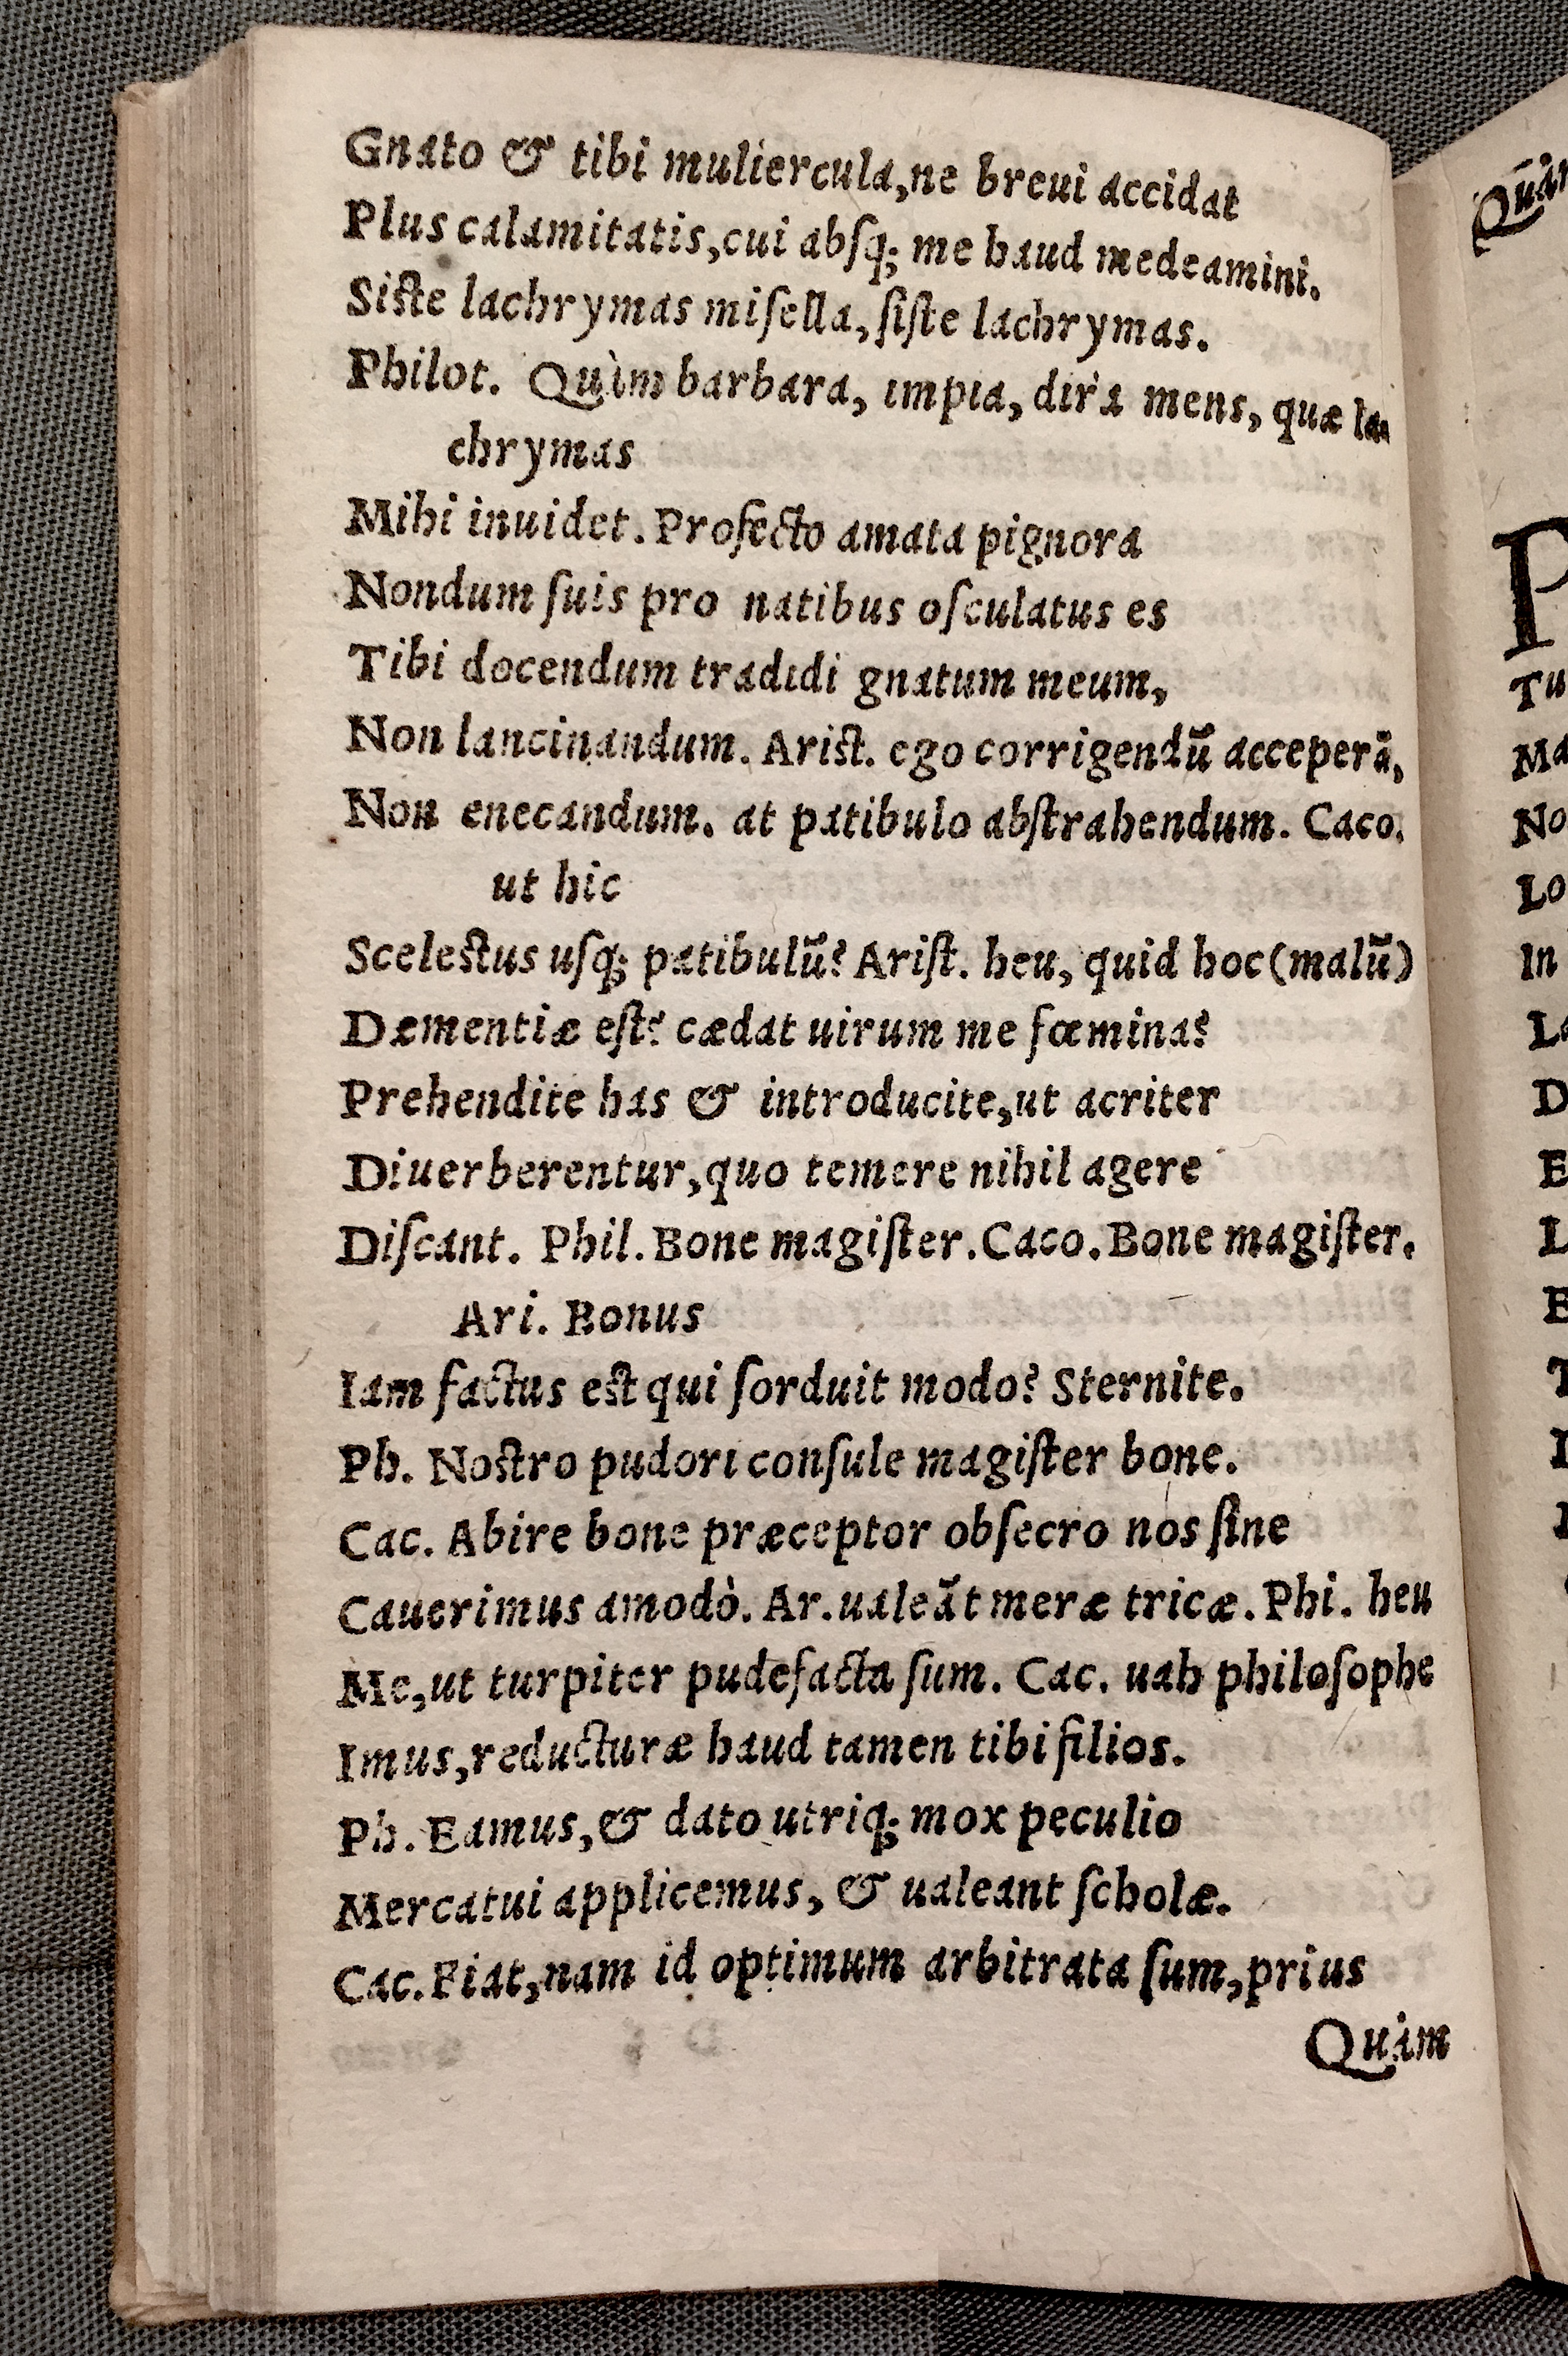 Gnato & tibi muliercula, ne breui accidat
Plus calamitatis, cui absq; me haud medeamini.
Siste lachrymas misella, siste lachrymas.
Philot. Quàm barbara, impia, dira mens, quæ la-
chrymas
Mihi inuidet. Profecto amata pignora
Nondum suis pro natibus osculatus es
Tibi docendum tradidi gnatum meum,
Non lancinandum. Arist. ego corrigendū acceperā,
Non enecandum. at patibulo abstrahendum. Caco.
ut hic
Scelestus usq; patibulū? Arist. heu, quid hoc (malū)
Dæmentiæ est? cædat uirum me fœmina?
Prehendite has & introducite, ut acriter
Diuerberentur, quo temere nihil agere
Discant. Phil. Bone magister. Caco. Bone magister.
Ari. Bonus
Iam factus est qui sorduit modo? Sternite.
Ph. Nostro pudori consule magister bone.
Cac. Abire bone præceptor obsecro nos sine
Cauerimus amodò. Ar. ualeāt meræ tricæ. Phi. heu
Me, ut turpiter pudefacta sum. Cac. uah philosophe
Imus, reducturæ haud tamen tibi filios.
Ph. Eamus, & dato utriq; mox peculio
Mercatui applicemus, & ualeant scholæ.
Cac. Fiat, nam id optimum arbitrata sum, prius
Quàm
P
Tu
Ma
No
Lo
In
D
E
L